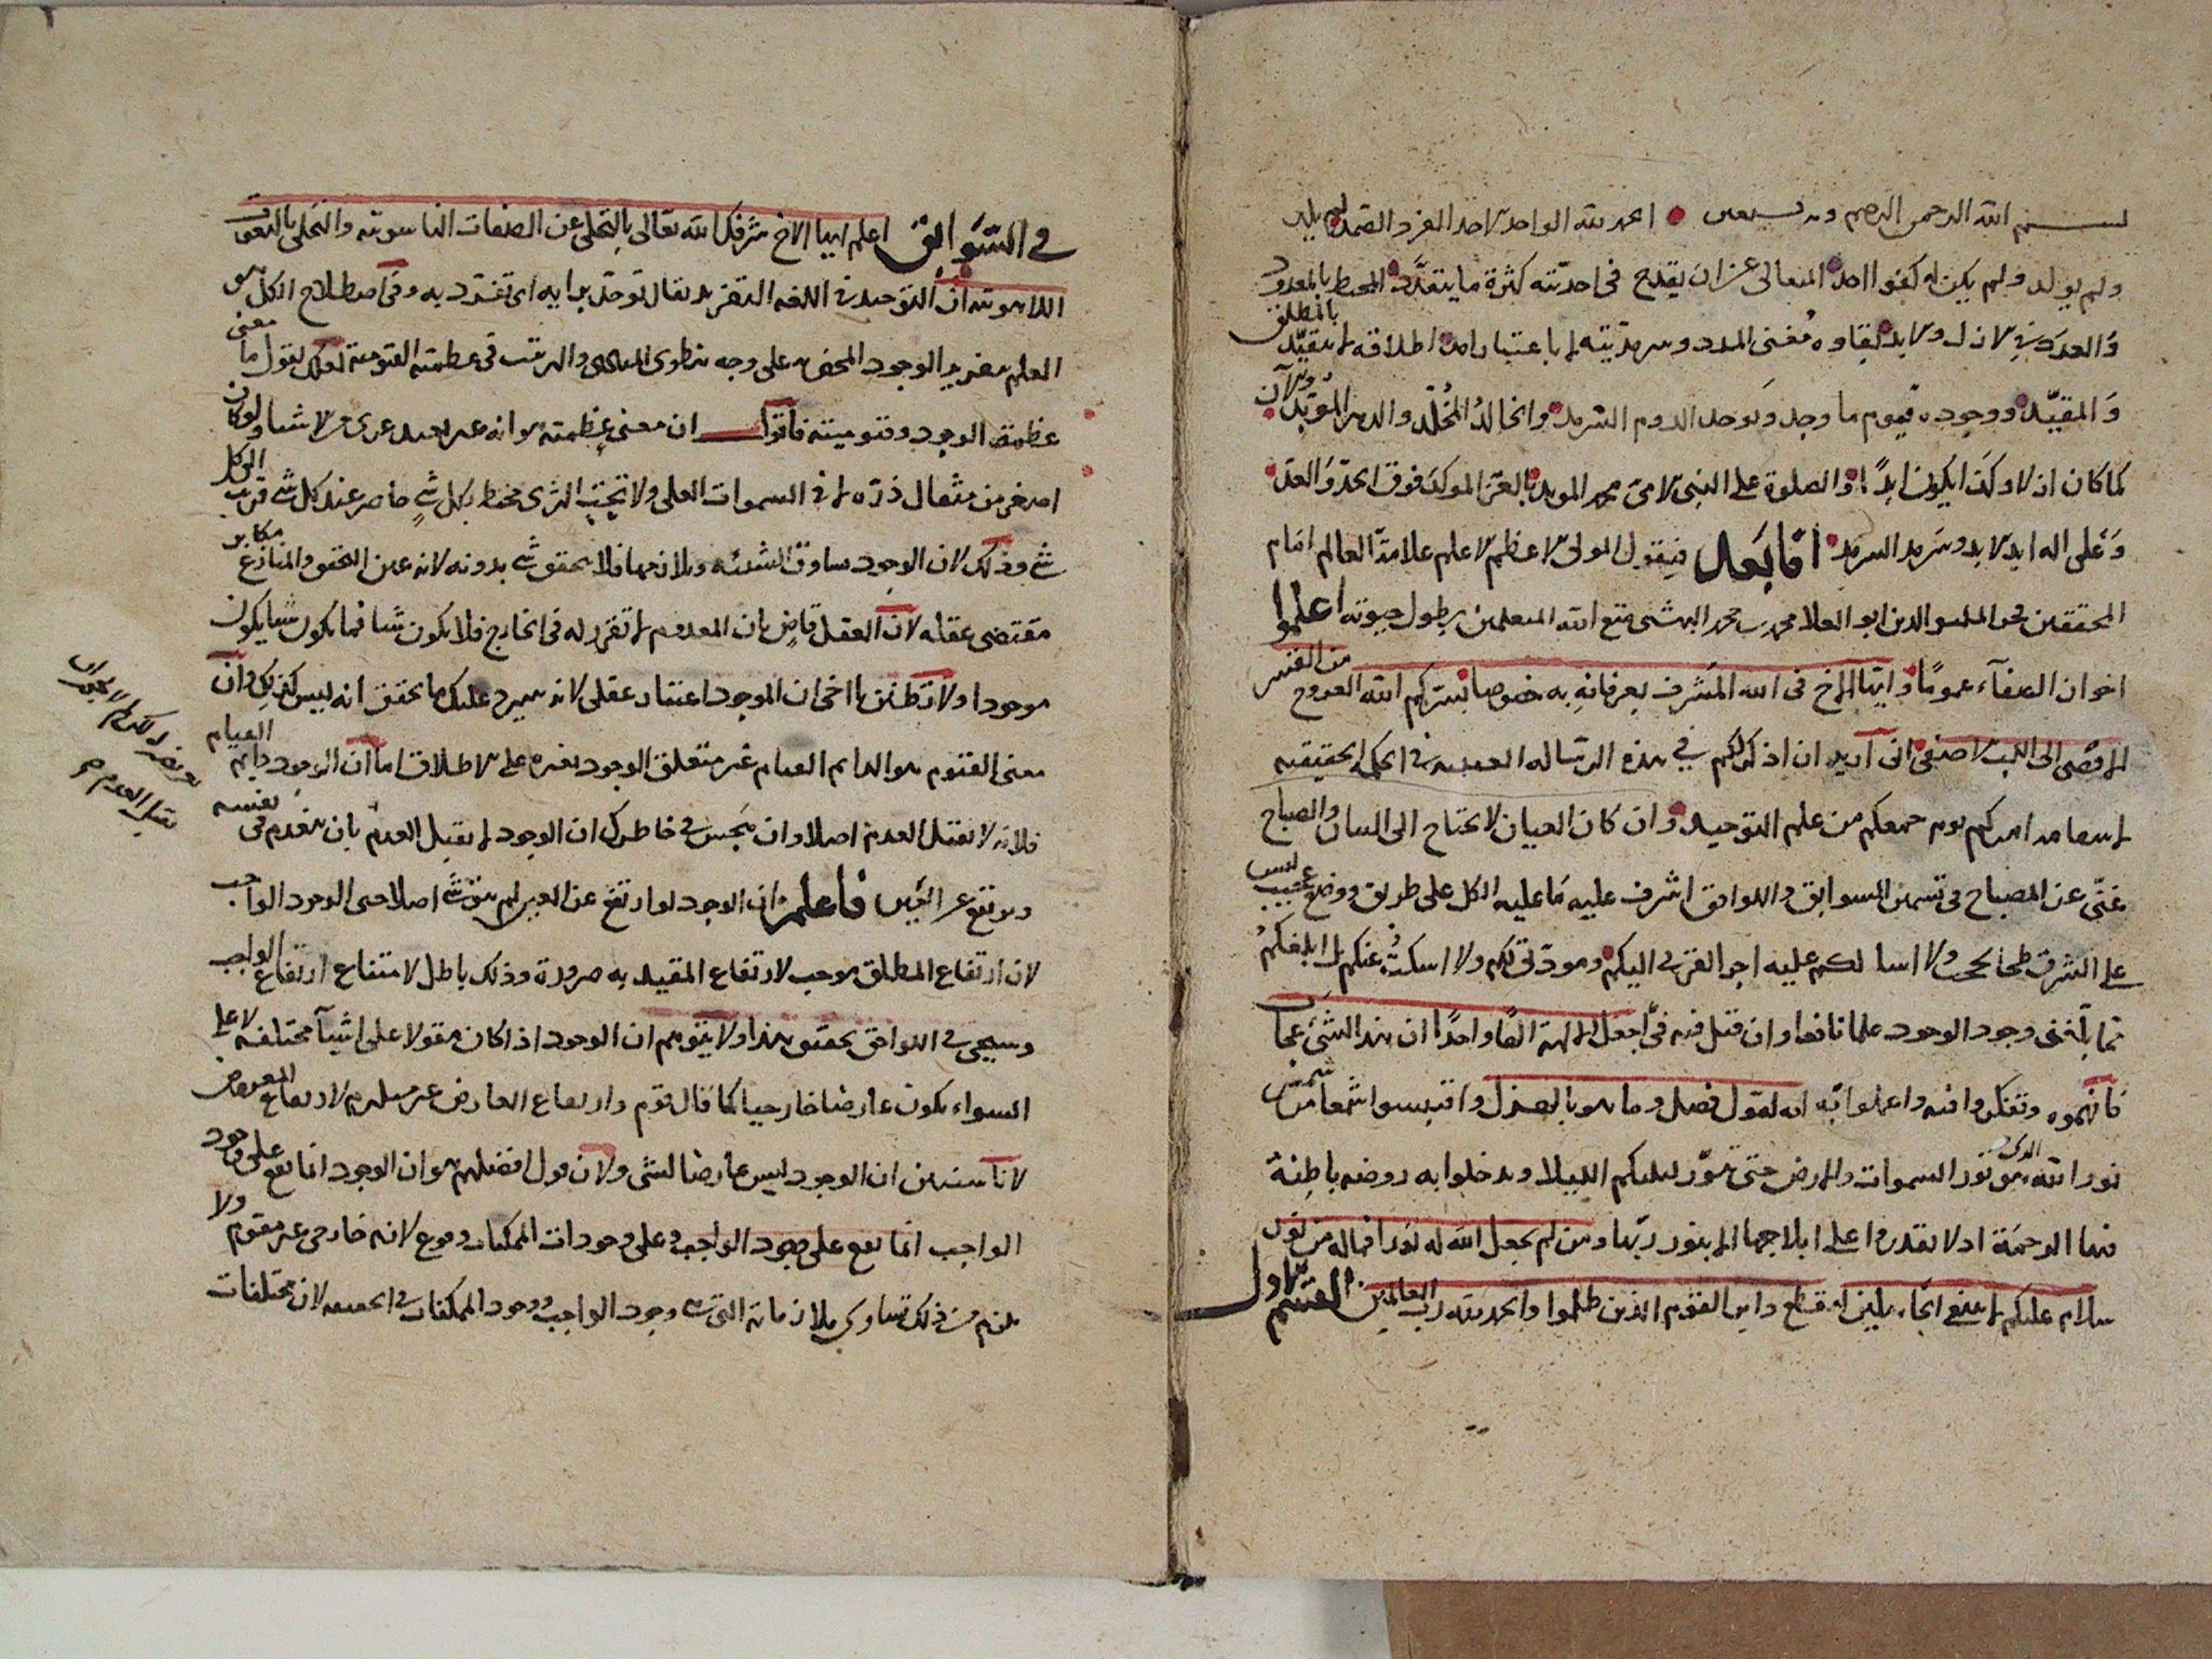 بسم الله الرحمن الرحيم وبه نستعين الحمد لله الواحد الاحد الفرد الصمد لم يلد
ولم يولد ولم يكن له كفوا احد المتعالى عن ان يقدح فى احديته كثرة ما يتعدد المحيط بالمعدود
والعدد فى الازل ولابد لبقاوه مفنى المدد وسرمديته لا باعتبار امد اطلاقه لا يتقيد بالمطلق
والمقيد ووجوده قيوم ما وجد ويوجد الدوم السرمد والخالد المخلد والدهر المؤبد والآن
كما كان ازلا وكذا يكون ابدا والصلوة على النبى الامى محمد المويد بالعز الموكد فوق الحد والعد
وعلى اله ابد الابد وسرمد السرمد اما بعد فيقول المولى الاعظم الاعلم علامة العالم امام
المحققين والدين ابو العلا محمد بن محمد البهشتى متع الله المتعلمين بطول حيوته اعلموا
اخوان الصفآء عموما وايها الاخ فى الله المشرف بعرفانه به خصوصا يسركم الله العروج من القشر
الاقصى الى اللب الاصفى انى اريد ان اذكركم فى هذه الرساله فى الحكم الحقيقيه
يوم جمعكم من علم التوحيد وان كان العيان لا يحتاج الى البيان والصباح
غنى عن المصباح فى قسمين السوابق واللواحق اشرف عليه ما عليه الكل على طريق ووضع عجيب ليس
على الشرق ولا اسالكم عليه اجرا الفرى اليكم ومودتى لكم ولا اسكت عنكم بل ابلغكم
بما بلغنى وجود الوجود علما نافعا وان قيل فيه فى اجعل الالهة الها واحدا ان هذا لشئ عجاب
فافهموه وتفكروا فيه واعملوا به انه لقول فصل وما هو بالهزل واقتبسوا شمعا من شمس
نور الله الذى هو نور السموات والارض حتى تنور ليلكم الليلا وتدخلوا به روضه باطنة
فيها الرحمة اذ لا تقدروا على ابلاجها الا بنور ربها ومن لم يجعل الله له نورا فما له من نور
سلام عليكم لا نبتغى الجاهلين فقطع دابر القوم الذين ظلموا والحمد لله رب العالمين القسم الاول
فى السوابق اعلم ايها الاخ شرفك الله تعالى بالتخلى عن الصفات الناسوتيه والتحلى بالنعوت
اللاهوتيه ان التوحيد فى اللغه التفريد يقال توحد برايه اى تفرد به وفى اصطلاح الكل هو
العلم بتفريد الوجود المحض على وجه ينطوى الكل والمرتب فى عظمته القيوميه لعلك تقول ما معنى
عظمة الوجود وقيوميته فاقول ان معنى عظمته هو انه غير بعيد عرى من الاشيا ولو كان
اصغر من مثقال ذره لا فى السموات العلى ولا تحت الثرى محيط بكل شئ حاضر عند كل شئ قريب الى كل
شئ وذلك لان الوجود يساوق الشيئيه ويلازمها فلا يتحقق شئ بدونه لانه عين التحقق والمنازع مكابر
مقتضى عقله لان العقل قاض بان المعدوم لا تقرر له فى الخارج فلا يكون شيا فما يكون شيا يكون
موجودا ولا تظنن يا اخى ان الموجود اعتبار عقلى لانه سيرد عليك ما تحقق انه ليس كذلك وان
معنى القيوم هو الدايم القيام غير متعلق الوجود بغيره على الاطلاق اما ان الوجود دايم القيام
فلانه لا يقبل العدم اصلا وان يهجس فى خاطرك ان الوجود لا يقبل العدم بان ينعدم فى نفسه
ويرتفع عن الغير فاعلم ان الوجود لو ارتفع عن الغير لم يبق شئ اصلا حتى الوجود الواجب
لان ارتفاع المطلق موجب لارتفاع المقيد به ضرورة وذلك باطل لامتناع ارتفاع الواجب
وسيجئ فى اللواحق تحقيق هذا ولا يتوهم ان الوجود اذا كان مقولا على اشيآ مختلفه لا على
السواء يكون عارضا خارجيا كما قال قوم وارتفاع العارض غير مستلزم لارتفاع المعروض
لانا سنبين ان الوجود ليس عارضا لشئ ولان قول افضلهم هو ان الوجود انما يقع على وجود
الواجب انما يقع على وجود الواجب وعلى وجودات الممكنات وقوع لانه خارجى غير مقوم ولا
يلزم من ذلك تساوى ملازماته التى هى وجود الواجب ووجود الممكنات فى الحقيقه لان مختلفات